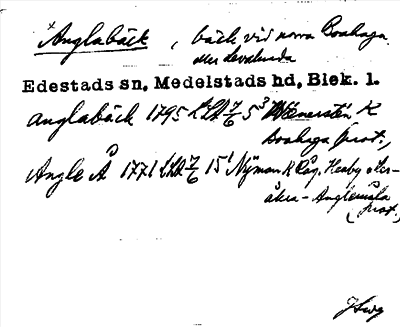 × Anglabäck, bäck vid norra Boahaga
eller Levalunda
Edestads sn, Medelstads hd, Blek. l.
Anglabäck 1795 LSA 7/6 5³ Wænerstén K
Boahaga prot.,
Angle Å 1771 LSA 7/6 15¹ Nyman K Råg. Heaby åker-
åkra - Anglemåla
(prot.)